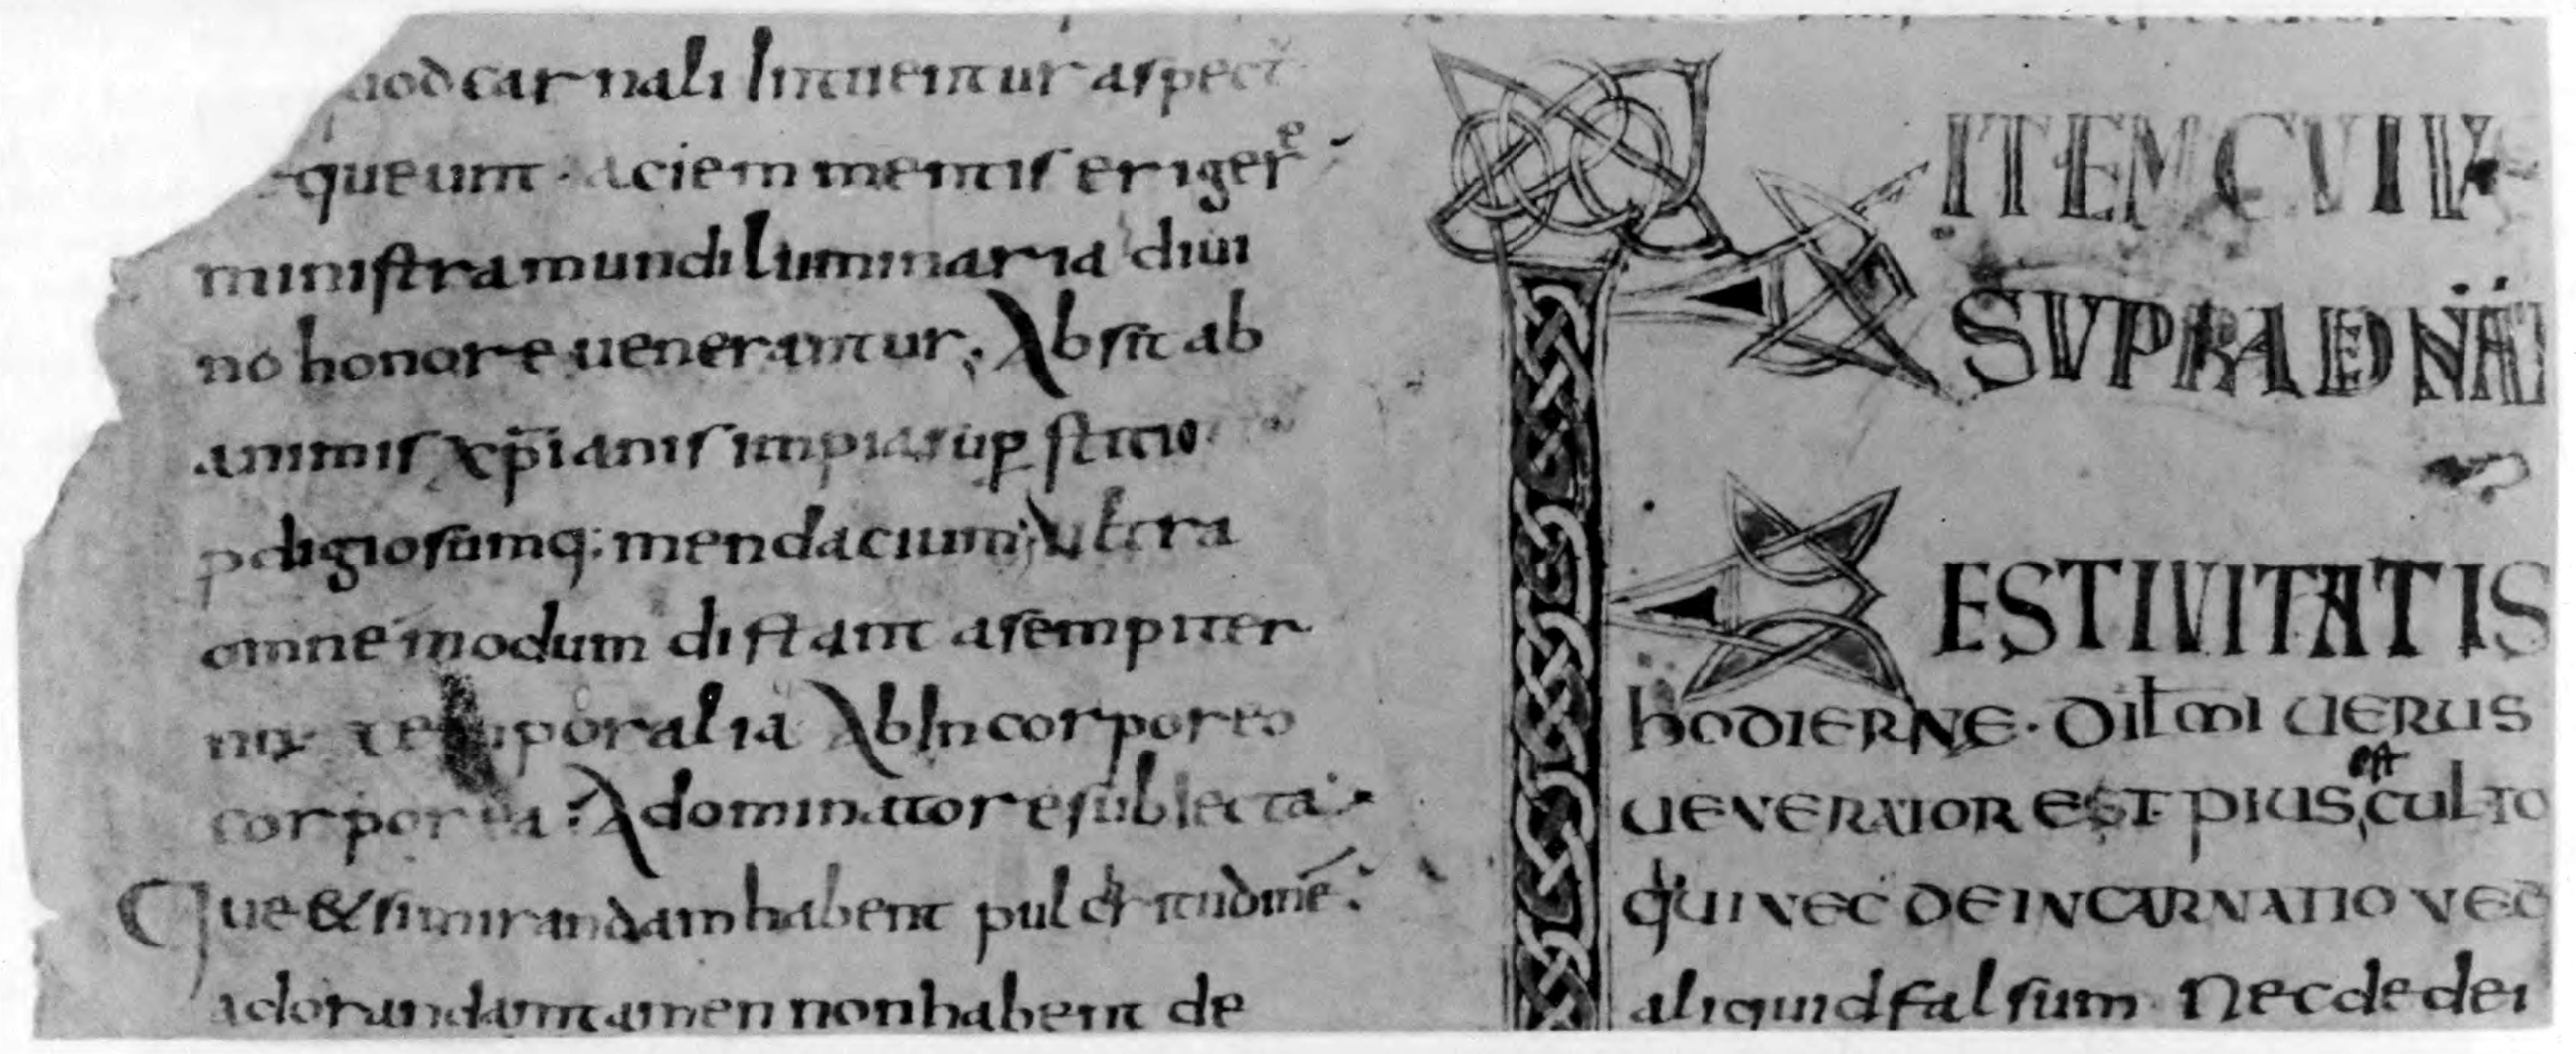 uod carnali Intuentur aspectu
queunt · aciem mentis erigere
ministra mundi luminaria diui
no honore uenerantur; Absit ab
animis xp̄ianis impia sup̱ stitio
p̱digiosumq; mendacium; Ultra
omne modum distant a sempiter
no temporalia Ab Incorporeo
corporea · A dominatore subiecta ·
Que & si mirandam habent pulchritudinē ·
adorandam tamen non habent de
ITEM CUIU
SUPRA D NAT
FESTIUITATIS
hODIERNE · DILMI UERUS
UENERATOR EST PIUS est CULTO
QUI NEC DE INCARNATIO NEC
aliquid falsum Nec de dei